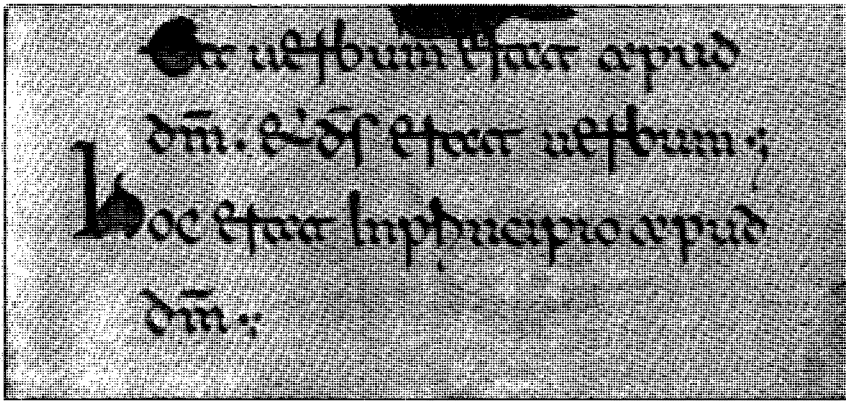 Et uerbum erat apud
dm̄. & ds̄ erat uerbum ·:,
hoc erat Inprincipio apud
dm̄ ·:,